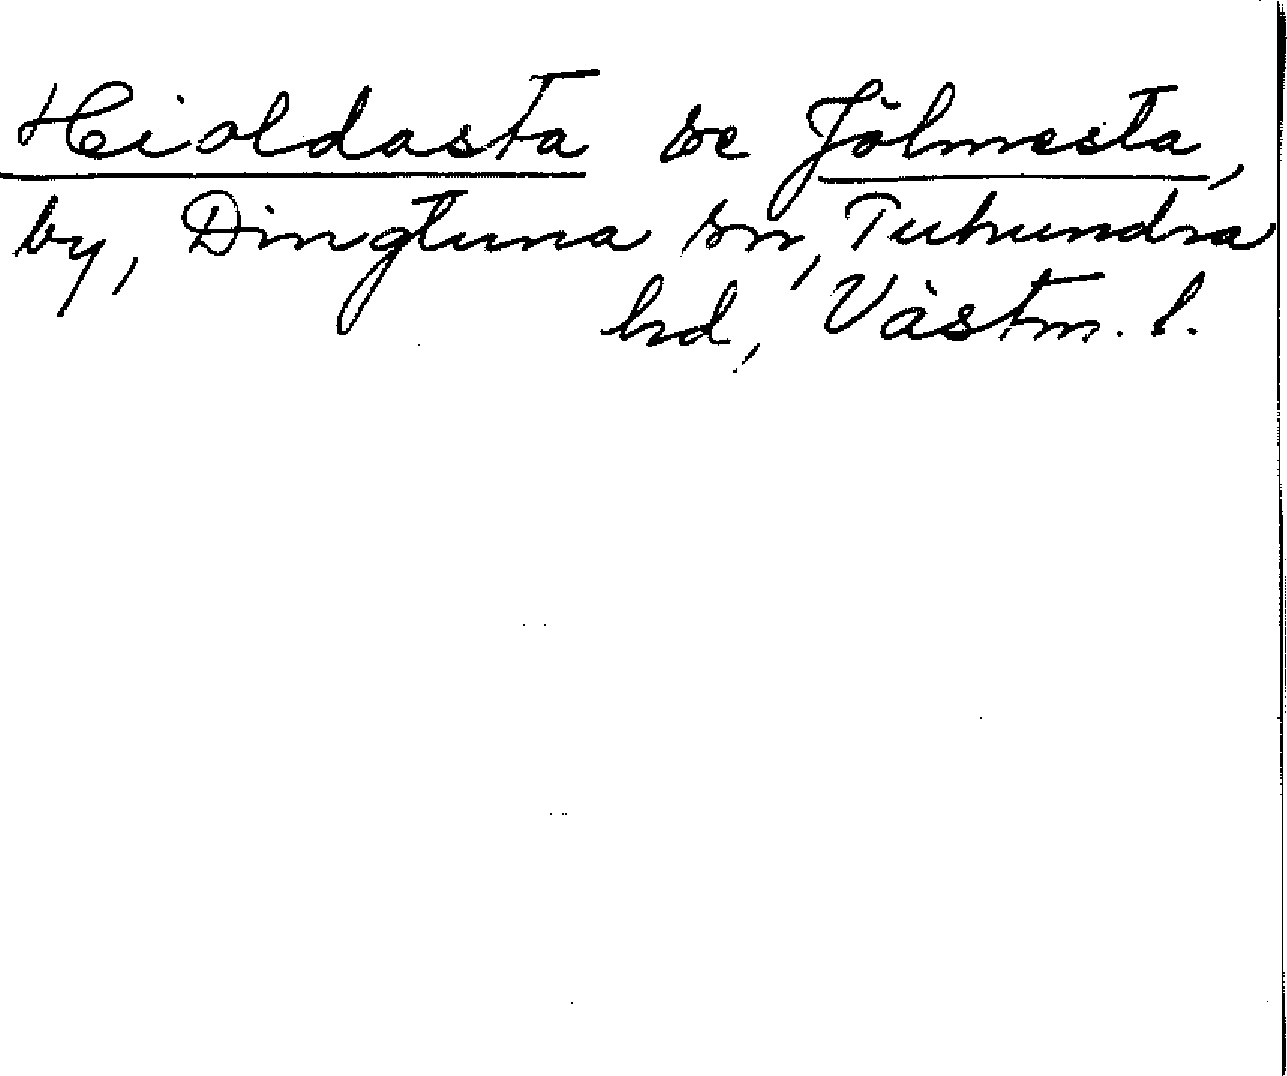 Hioldasta se Jölmesta,
by, Dingtuna sn, Tuhundra
hd, Västm. l.